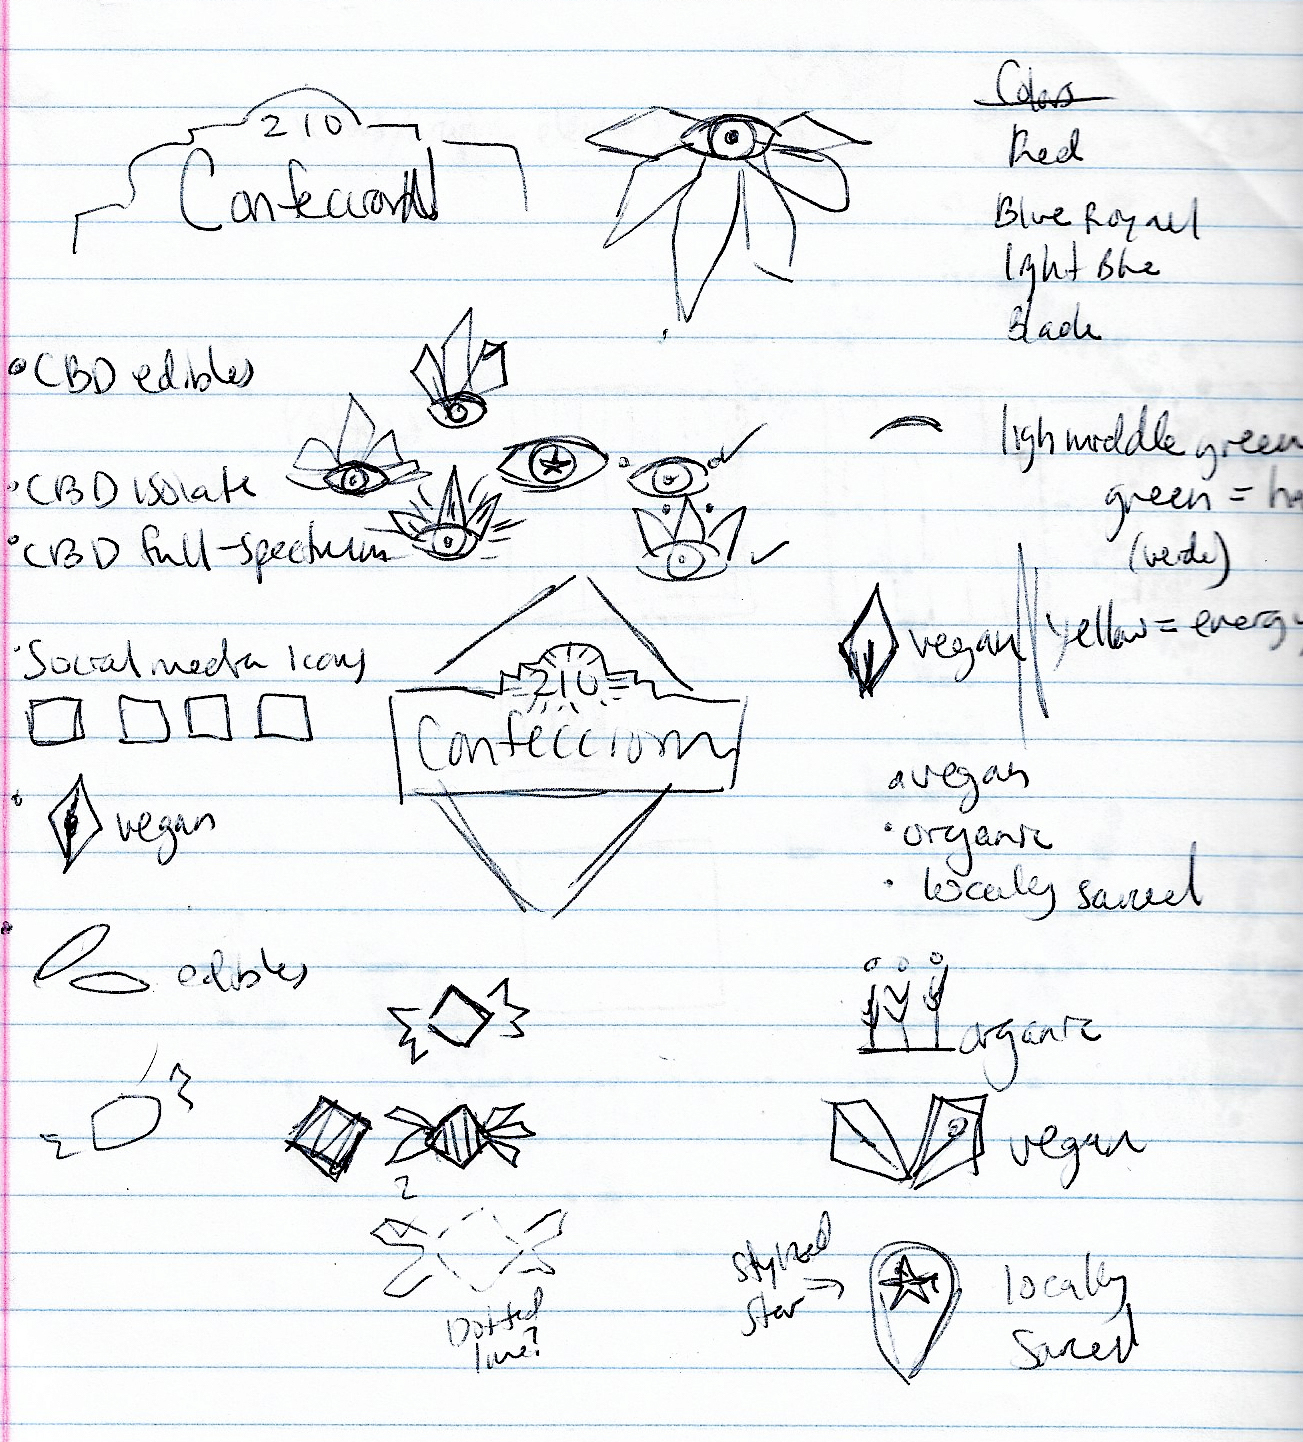 Colors
210
Confeccion
Red
Blue Royal
light Blue
Black
• CBD edibles
ligh middle green
• CBD isolate
green = h
• CBD full-spectrum
(verde)
vegan
yellow = energy
• Social media Icons
210
Confeccion
• vegan
• vegan
• organic
• locally sourced
• edibles
organic
vegan
2
stylized
star →
Dotted
line?
locally
sourced